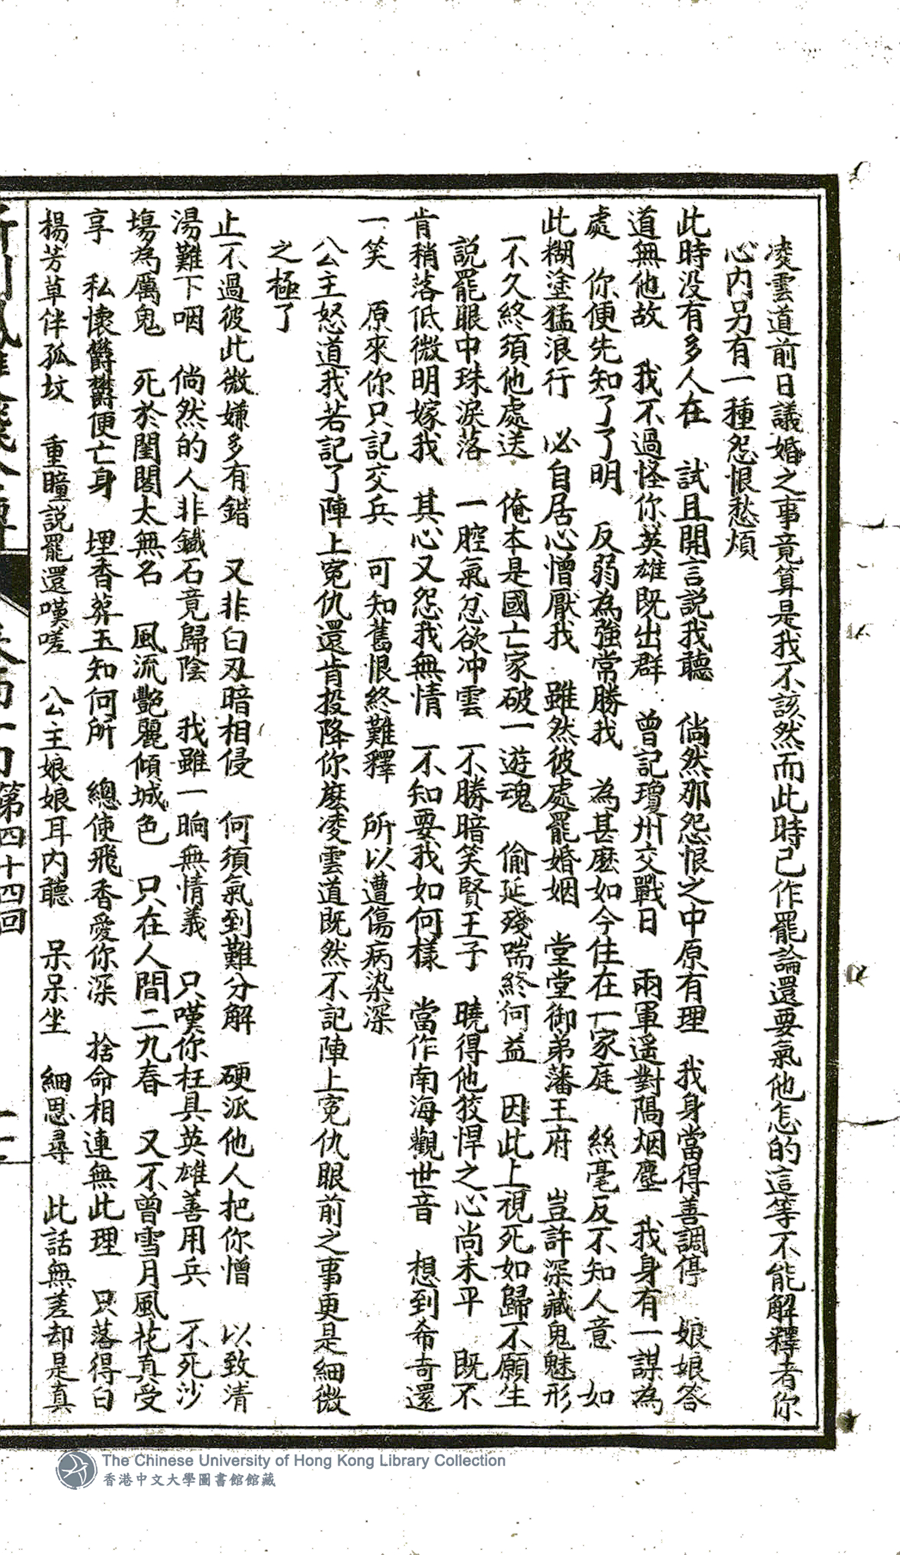 凌雲道前日議婚之事竟算是我不該然而此時已作罷論還要氣他怎的這等不能解釋者你
心內另有一種怨恨愁煩
此時没有多人在　試且開言說我聽　倘然那怨恨之中原有理　我身當得善調停　娘娘答
道無他故　我不過怪你英雄既出群　曾記瓊州交戰日　兩軍遥對隔烟塵　我身有一謀為
處　你便先知了了明　反弱為強常勝我　為甚麽如今住在一家庭　絲毫反不知人意　如
此糊塗猛浪行　必自居心憎厭我　雖然彼處罷婚姻　堂堂御弟藩王府　豈許深藏鬼魅形
不久終須他處送　俺本是國亡家破一遊魂　偷延殘喘終何益　因此上視死如歸不願生
說罷眼中珠淚落　一腔氣忿欲冲雲　不勝暗笑賢王子　曉得他狡悍之心尚未平　既不
肯稍落低微明嫁我　其心又怨我無情　不知要我如何樣　當作南海觀世音　想到希奇還
一笑　原來你只記交兵　可知舊恨終難釋　所以遭傷病染深
公主怒道我若記了陣上寃仇還肯投降你麽凌雲道既然不記陣上寃仇眼前之事更是細微
之極了
止不過彼此微嫌多有錯　又非白刄暗相侵　何須氣到難分解　硬派他人把你憎　以致清
湯難下咽　倘然的人非鐵石竟歸陰　我雖一晌無情義　只嘆你枉具英雄善用兵　不死沙
塲為厲鬼　死於閨閫太無名　風流艷麗傾城色　只在人間二九春　又不曾雪月風花真受
享　私懷欝欝便亡身　埋香葬玉知何所　總使飛香愛你深　捨命相連無此理　只落得白
楊芳草伴孤坟　重瞳説罷還嘆嗟　公主娘娘耳内聽　呆呆坐　細思尋　此話無差却是真
第四十四回
The Chinese University of Hong Kong Library Collection
香港中文大學圖書館館藏